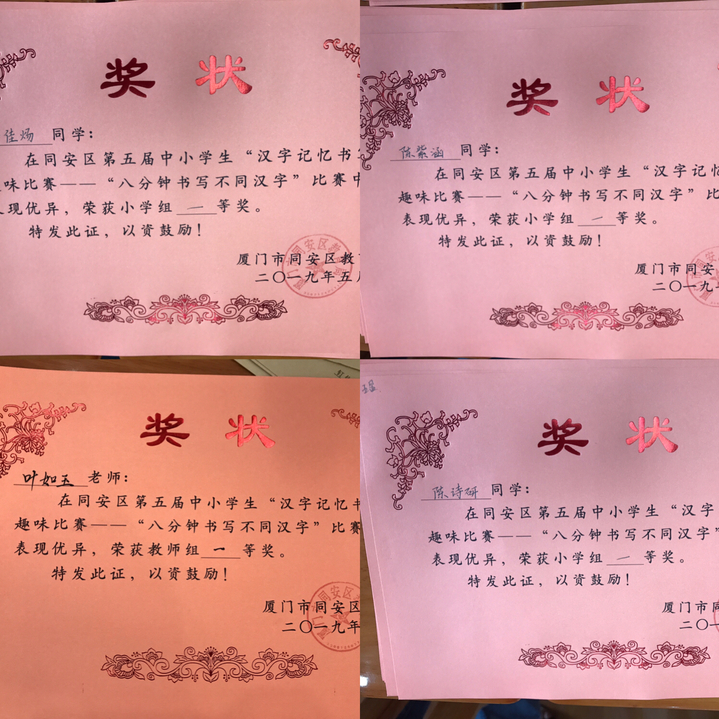 奖状
佳炀同学：
在同安区第五届中小学生“汉字记忆书
趣味比赛——“八分钟书写不同汉字”比赛中
表现优异，荣获小学组一等奖。
特发此证，以资鼓励！
厦门市同安区教
二〇一九年五月
奖状
陈紫涵同学：
在同安区第五届中小学生“汉字记忆
趣味比赛——“八分钟书写不同汉字”
表现优异，荣获小学组一等奖。
特发此证，以资鼓励！
厦门市同安
二〇一九
奖状
叶如玉老师：
在同安区第五届中小学生“汉字记忆书
趣味比赛——“八分钟书写不同汉字”比赛
表现优异，荣获教师组一等奖。
特发此证，以资鼓励！
厦门市同安区
二〇一九年
奖状
陈诗妍同学：
在同安区第五届中小学生“汉字
趣味比赛——“八分钟书写不同汉字”
表现优异，荣获小学组一等奖。
特发此证，以资鼓励！
厦门市同
二〇一